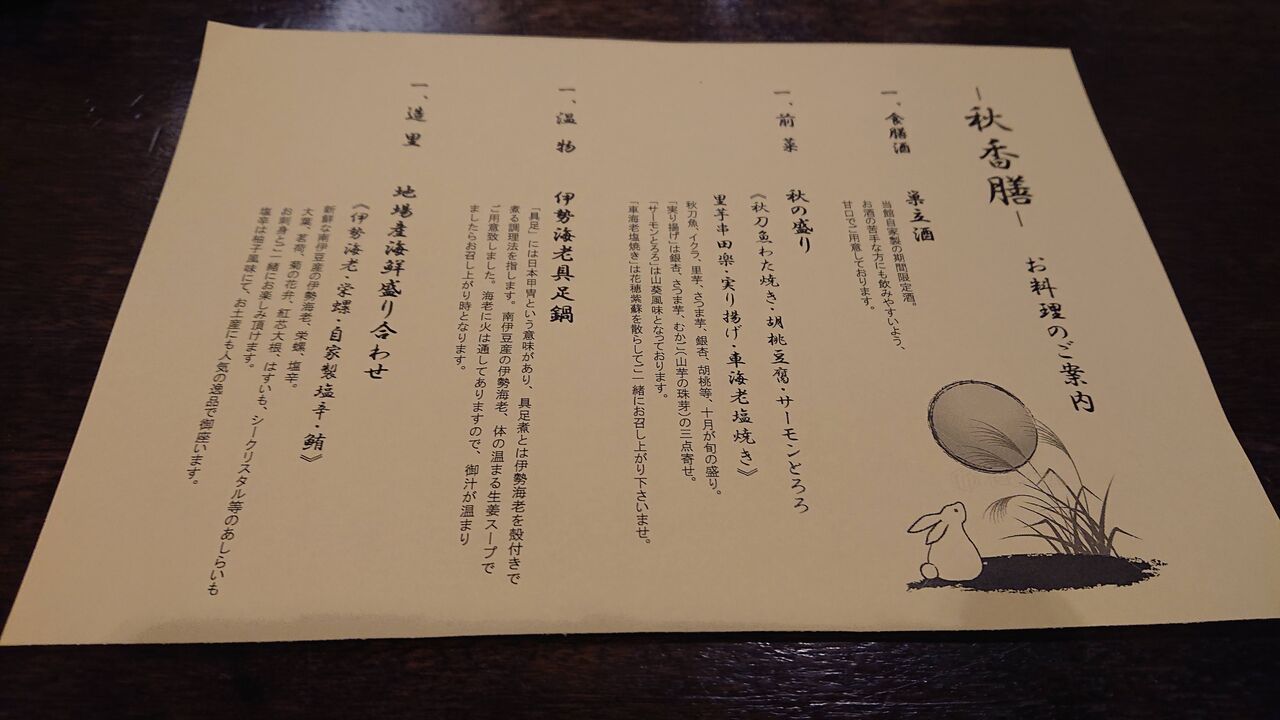 ―秋香膳― お料理のご案内
一、食膳酒
巣立酒
当館自家製の期間限定酒。
お酒の苦手な方にも飲みやすいよう、
甘口でご用意しております。
一、前菜
秋の盛り
《秋刀魚わた焼き・胡桃豆腐・サーモンとろろ
里芋串田楽・実り揚げ・車海老塩焼き》
秋刀魚、イクラ、里芋、さつま芋、銀杏、胡桃等、十月が旬の盛り。
「実り揚げ」は銀杏、さつま芋、むかご(山芋の珠芽)の三点寄せ。
「サーモンとろろ」は山葵風味となっております。
「車海老塩焼き」は花穂紫蘇を散らしてご一緒にお召し上がり下さいませ。
一、温物
伊勢海老具足鍋
「具足」には日本甲冑という意味があり、具足煮とは伊勢海老を殻付きで
煮る調理法を指します。南伊豆産の伊勢海老、体の温まる生姜スープで
ご用意致しました。海老に火は通してありますので、御汁が温まり
ましたらお召し上がり時となります。
一、造里
地場産海鮮盛り合わせ
《伊勢海老・栄螺・自家製塩辛・鮪》
新鮮な南伊豆産の伊勢海老、栄螺、塩辛。
大葉、茗荷、菊の花弁、紅芯大根、はすいも、シークリスタル等のあしらいも
お刺身とご一緒にお楽しみ頂けます。
塩辛は柚子風味にて、お土産にも人気の逸品で御座います。